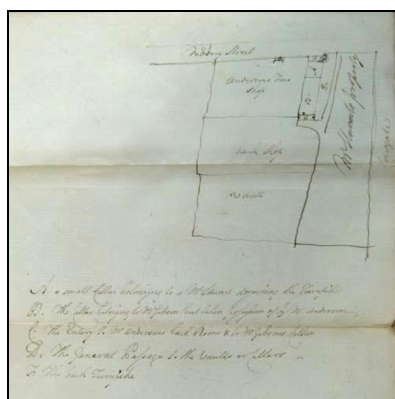 Niddrys Street
Andersons Fore
Shop
Back Shop
Vault
Cowgate
A a small Cellar belonging to a Mr Stewart adjoining the Turnpike
B. The Cellar belonging to Mr Gibson but taken possession of by Mr Anderson
C. The Entry to Mr Andersons Back Room & to Mr Gibsons Cellar
D. The General Passage to the Vaults & Cellars
The back Turnpike